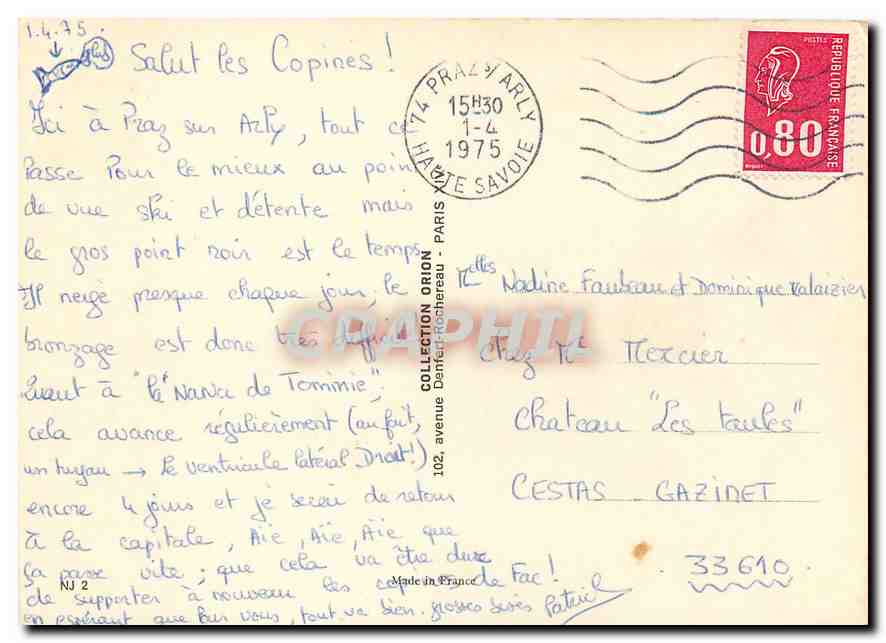 1.4.75
Salut les Copines !
Ici à Praz sur Arly, tout ce
passe pour le mieux au point
de vue ski et détente mais
le gros point noir est le temps
Il neige presque chaque jour, le
bronzage est donc très difficile
Quant à "la" Nana de Tommie",
cela avance régulièrement (au fait,
un tuyau → le ventricule latéral Droit!)
encore 4 jours et je serai de retour
à la capitale, Aïe, Aïe, Aïe que
ça passe vite ; que cela va être dure
de supporter à nouveau les copines de Fac !
en espérant que pour vous, tout va bien. grosses bises
74 PRAZ S/ ARLY
15H30
1-4
1975
HAUTE SAVOIE
POSTES
REPUBLIQUE FRANÇAISE
0,80
Melles Nadine Faubeau et Dominique Valaizier
Chez Mr Mercier
Chateau "Les taules"
CESTAS - GAZINET
33610
COLLECTION ORION
102, avenue Denfert-Rochereau - PARIS XIV
CARPHIL
NJ 2
Made in France